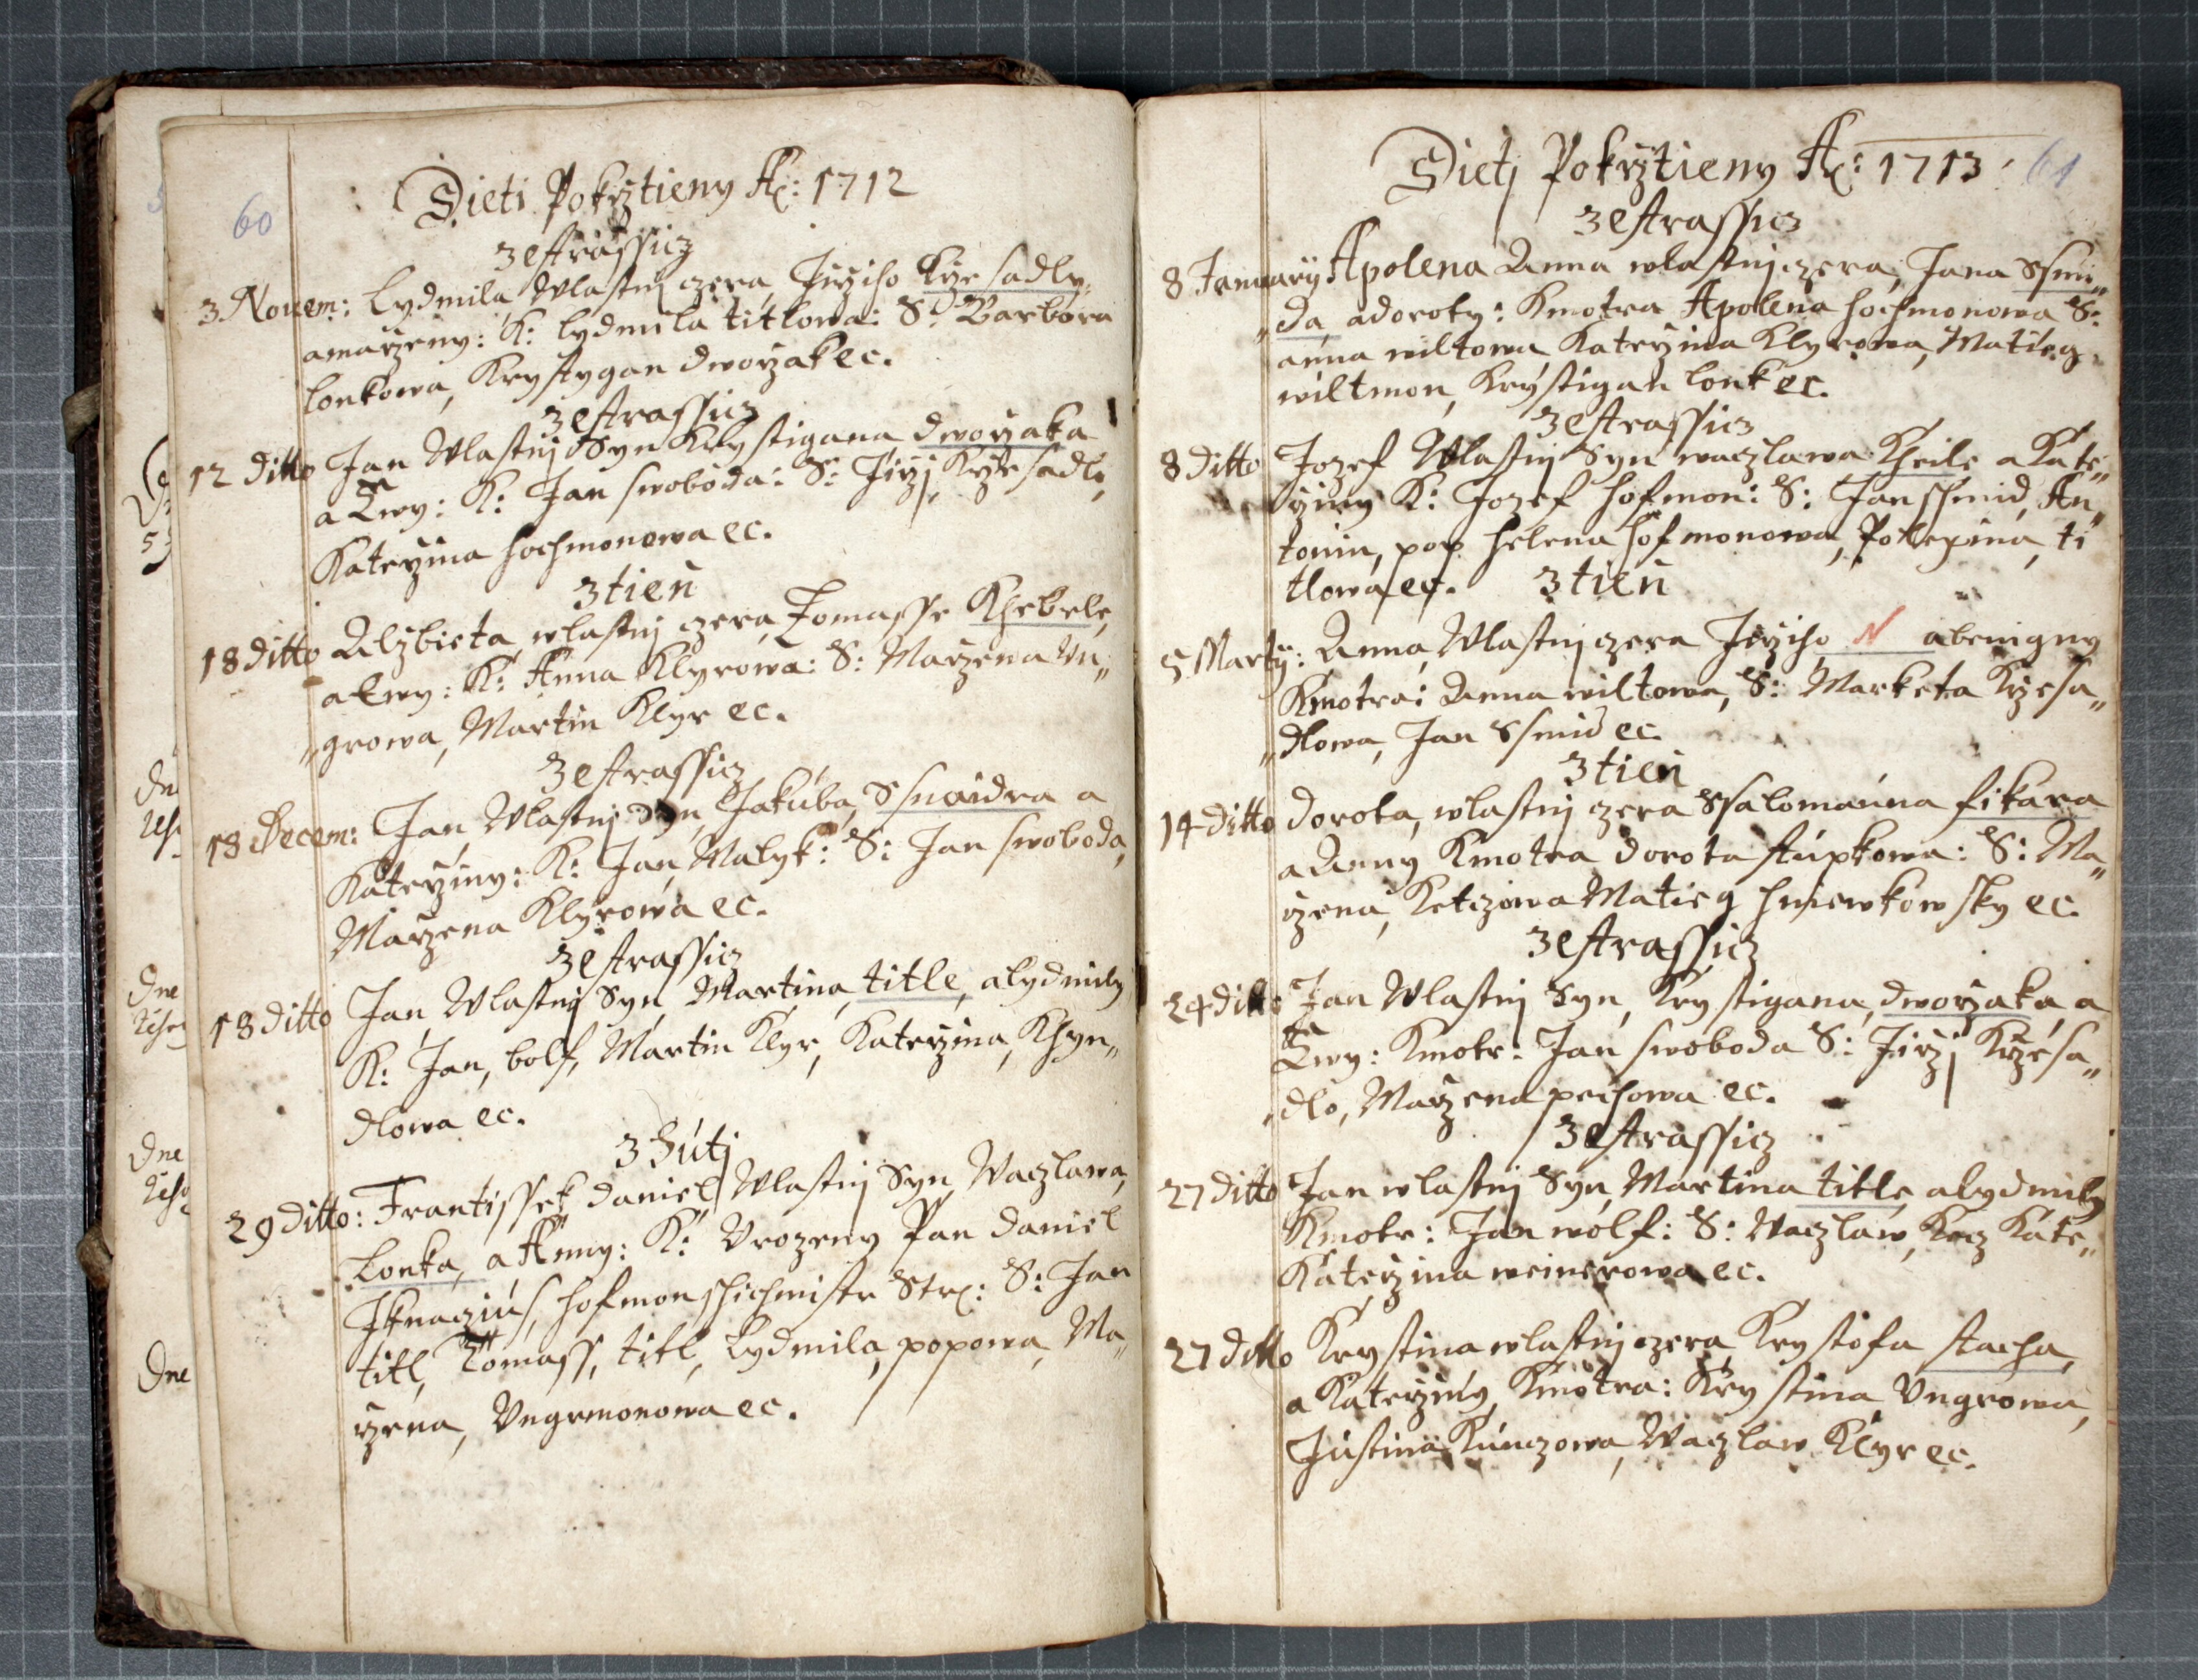 60
Dieti Pokrztieny Ao: 1712
Z Estrassicz
3 Nouem: Lydmila, Wlastnj czera, Jirziho Krze sadly,
amarzeny: K: lydmila titlowa: S: Barbora
lonkowa, Krystygan dworzak ec.
Z Estrassicz
12 ditto Jan Wlastnj Syn Krystigana dworzaka
a Ewy: K: Jan swoboda: S: Jirzj Krze sadlo,
Katerzina hochmonowa ec.
Z tien
18 ditto Alzbieta, wlastnj czera, Tomasse Khebele,
a Ewy: K: Anna Klyrowa: S: Marzena Vn„
„growa, Martin Klyr ec.
Z Estrassicz
18 Decem: Jan, Wlastnj Syn, Jakuba, Ssnaidra a
Katerziny: K: Jan Malyk: S: Jan swoboda,
Marzena Klyrowa ec.
Z Estrassicz
18 ditto Jan, Wlastnj Syn, Martina, title, alydmily
K: Jan, bolf, Martin Klyr, Katerzina, Khyn„
dlowa ec.
Z Hutj
29 ditto: Frantissek daniel, Wlastnj Syn, Waczlawa,
Lonka, a Anny: K: Vrozeny Pan Daniel
Iknaczius, hofmon schichmistr Str: S: Jan
titl, Tomass, titl, Lydmila, popowa, Ma„
rzena, Vngrmonowa ec.
61
Dietj Pokrztieny Ao: 1713
Z Estrassicz
8 Januarij Apolena Anna wlastnj czera, Jana Ssmi„
„da adoroty: Kmotra Apolena hochmonowa S:
anna wiltowa Katerzina Klyrowa, Matieg
wiltmon, Krystigan lonk ec.
Z Estrassicz
8 ditto Jozef Wlastnj Syn waczlawa Kheile a Kate„
rziny K: Jozef hofmon: S: Jan schmid, An„
tonin, pop helena hofmonowa, Pollexina, ti
tlowa ec. Z tien
5 Martij: Anna, Wlastnj czera Jirziho N abenigny
Kmotra: Anna wiltowa, S: Marketa Krzesa„
„dlowa, Jan Ssmid ec.
Z tien
14 ditto Dorota, wlastnj czera Ssalomauna fikara
a Anny Kmotra dorota stupkowa: S: Ma„
rzena, Ketczowa Matieg hniewkowsky ec.
Z Estrassicz
24 ditto Jan Wlastnj Syn, Krystigana, dworzaka, a
Ewy: Kmotr: Jan swoboda S: Jirzj Krzesa„
„dlo, Marzena pechowa ec.
Z Estrassicz
27 ditto Jan wlastnj Syn, Martina title alydmily
Kmotr: Jan wolf: S: Waczlaw, Kecz Kate„
Katerzina weinerowa ec.
27 ditto Krystina wlastnj czera Krystofa stacha,
a Katerziny, Kmotra: Krystina Vngrowa,
Justina Kunczowa, Waczlaw Klyr ec.